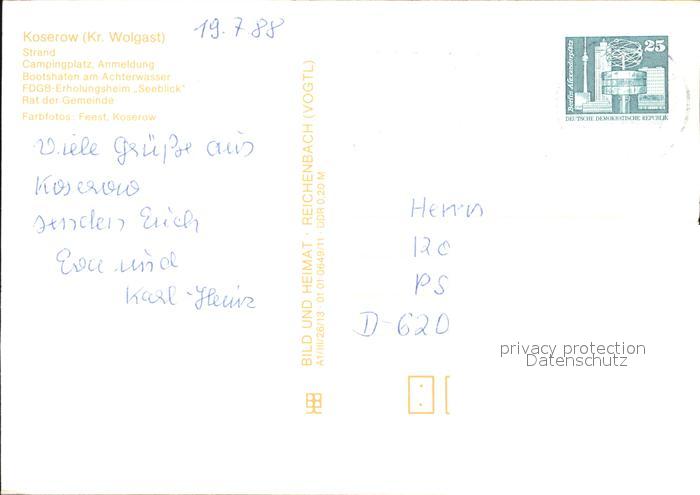 Koserow (Kr. Wolgast)
Strand
Campingplatz, Anmeldung
Bootshafen am Achterwasser
FDGB-Erholungsheim „Seeblick"
Rat der Gemeinde
Farbfotos: Feest, Koserow
19.7.88
Viele Grüße aus
Koserow
senden Euch
Eva und
Karl-Heinz
BILD UND HEIMAT · REICHENBACH (VOGTL)
A1/III/26/13 · 01 01 0649/11 · DDR 0,20 M
Berlin, Alexanderplatz
25
DEUTSCHE DEMOKRATISCHE REPUBLIK
Herrn
PS
D-620
privacy protection
Datenschutz